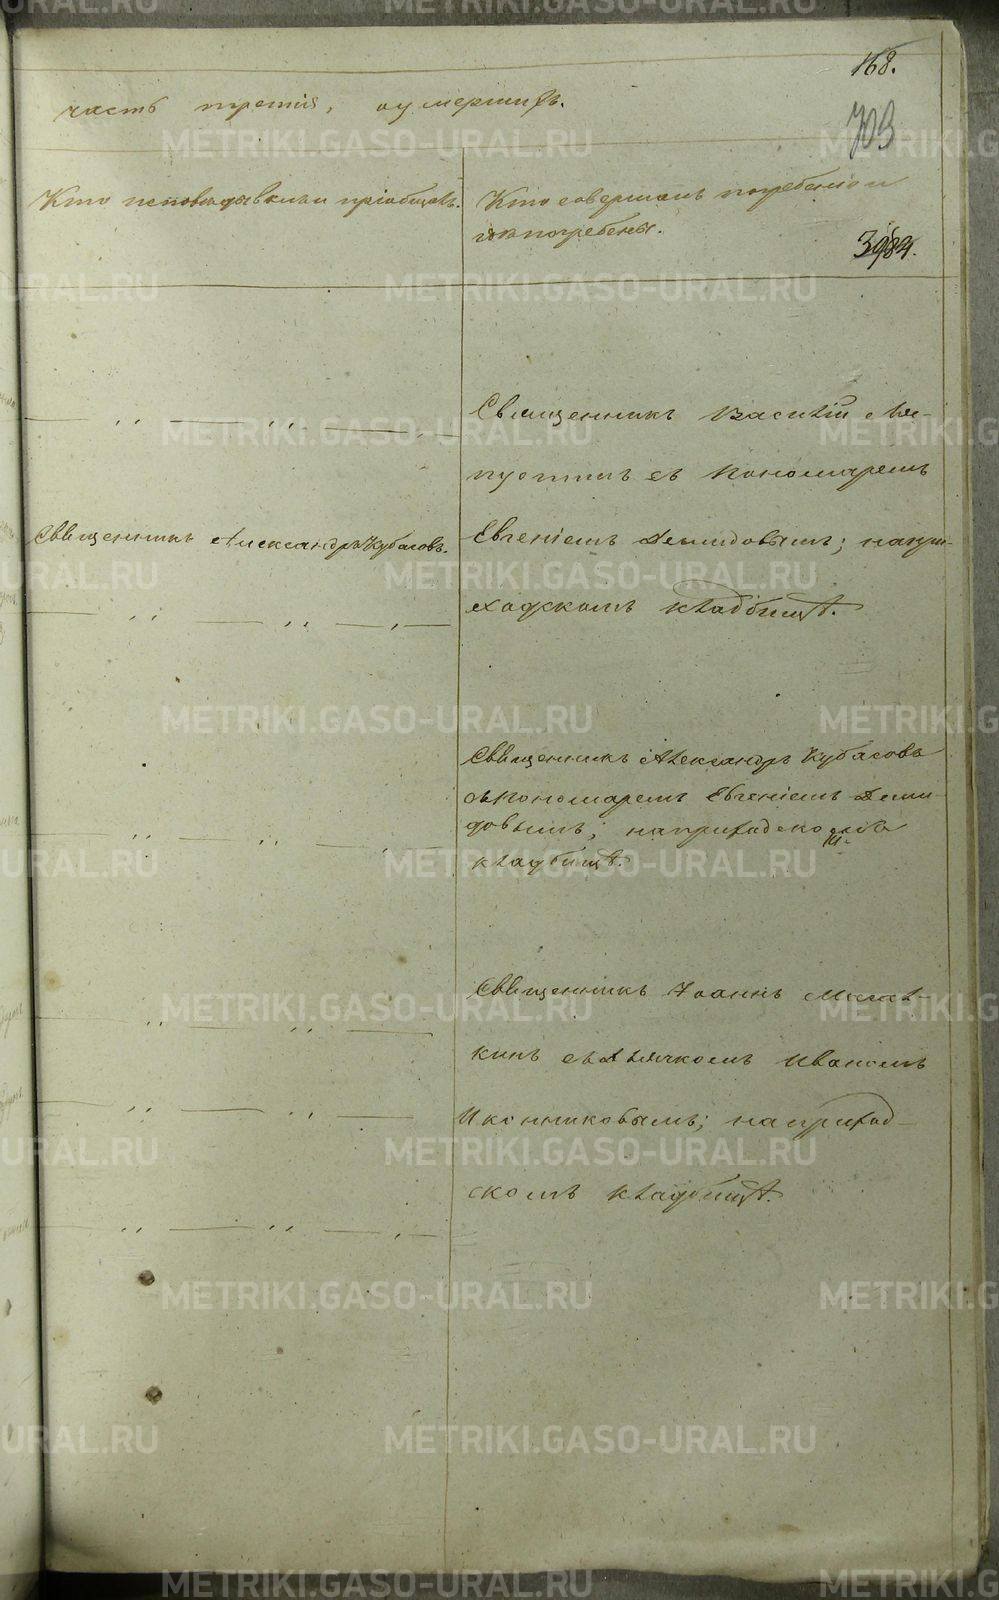 168.
часть третія, о умершихъ.
703
Кто исповѣдывалъ и пріобщалъ.
Кто совершалъ погребеніе и
гдѣ погребены.
3984.
Священникъ Василій Ля-
пустинъ съ Пономаремъ
Священникъ Александръ Кубасовъ.
Евгеніемъ Демидовымъ; на при-
ходскомъ кладбищѣ.
Священникъ Александръ Кубасовъ
съ Пономаремъ Евгеніемъ Деми-
довымъ; на приходскомъ
кладбищѣ.
Священникъ Іоаннъ
кинъ съ Дьячкомъ Иваномъ
Иконниковымъ; на приход-
скомъ кладбищѣ.
METRIKI.GASO-URAL.RU